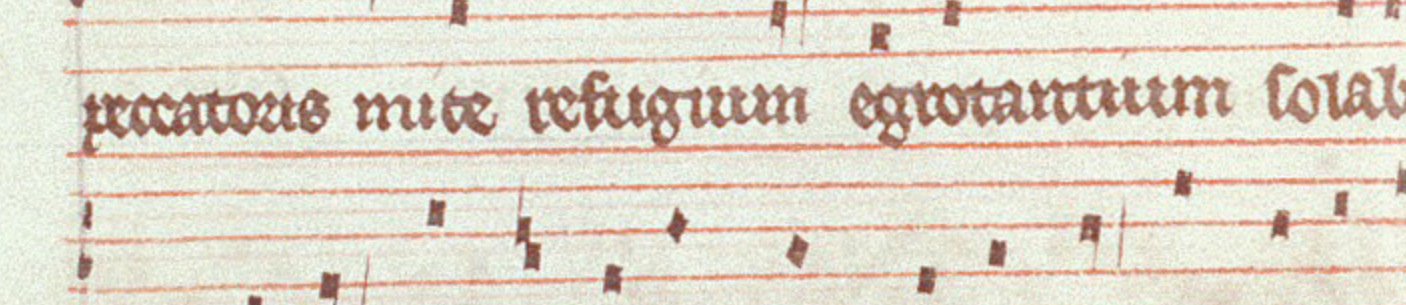 peccatoris mite refugium egrotantium solab